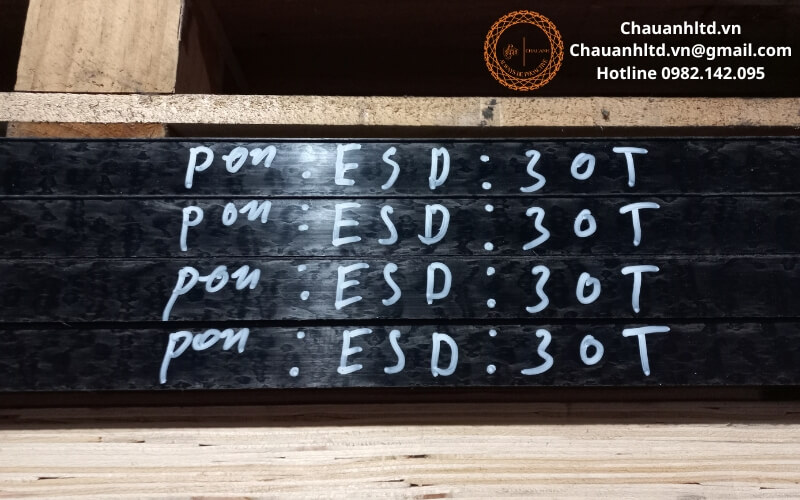 Chauanhltd.vn
Chauanhltd.vn@gmail.com
Hotline 0982.142.095
pon : ESD : 30T
pon : ESD : 30T
pon : ESD : 30T
pon : ESD : 30T